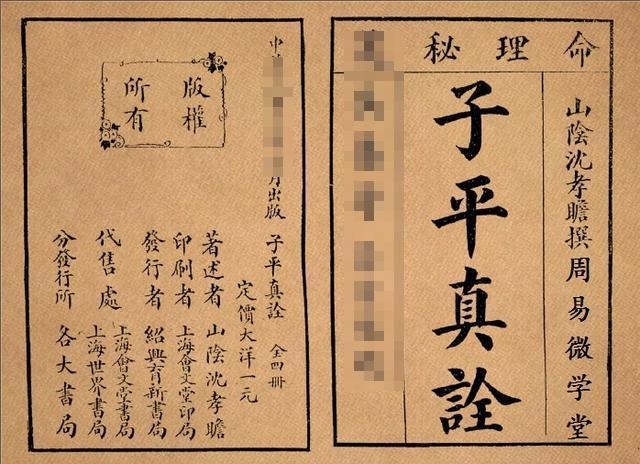 命理秘
山陰沈孝瞻撰周易微学堂
子平真詮
中
月出版
版權
所有
子平真詮 全四冊
定價大洋一元
著述者 山陰沈孝瞻
印刷者 上海會文堂印局
發行者 紹興育新書局
代售處 上海會文堂書局
上海世界書局
分發行所 各大書局